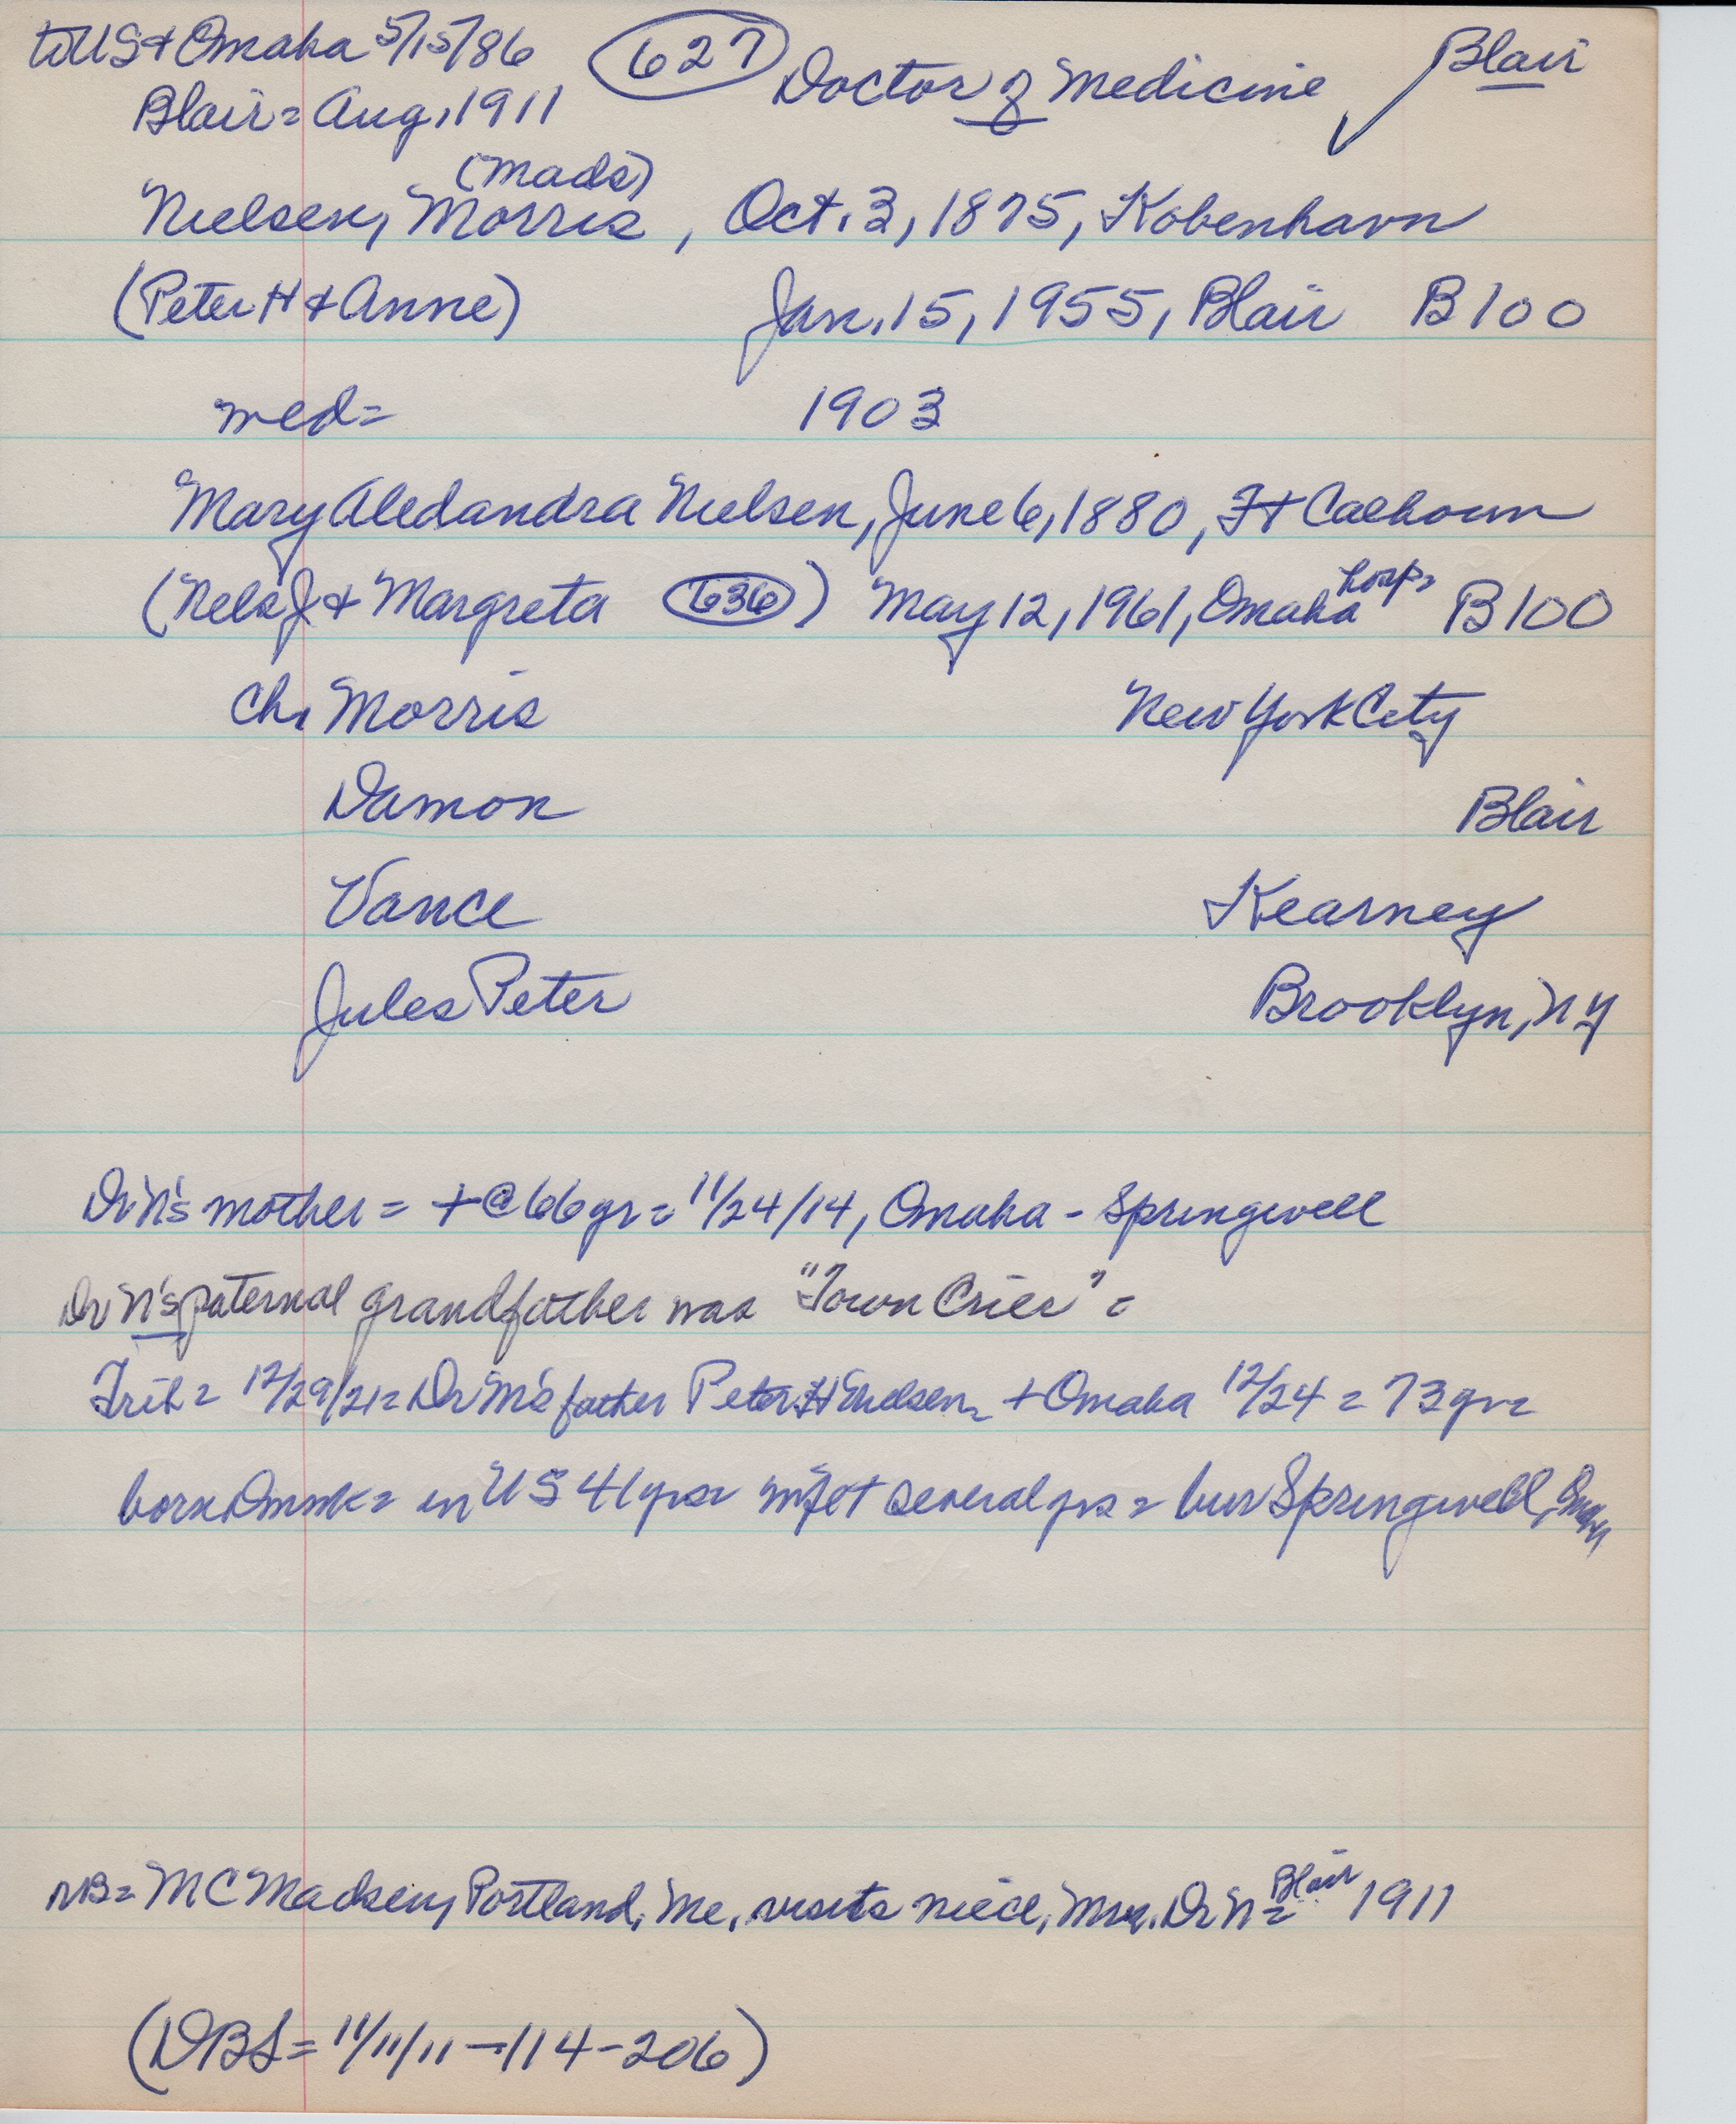 to US & Omaha 5/15/86
627
Doctor of Medicine
Blair
Blair = Aug. 1911
(Mads)
Nielsen, Morris, Oct. 3, 1875, Kobenhavn
(Peter H & Anne) Jan. 15, 1955, Blair B100
med = 1903
Mary Aledandra Nielsen, June 6, 1880, Ft Calhoun
(Nels J & Margreta 636) May 12, 1961, Omaha hosp = B100
Ch, Morris New York City
Damon Blair
Vance Kearney
Jules Peter Brooklyn, NY
Dr N's mother = + @ 66 yr = 11/24/14, Omaha - Springwell
Dr N's paternal grandfather was "Town Crier" =
Trib = 12/29/21 = Dr N's father Peter H Nielsen = + Omaha 12/24 = 73 yr =
born Dnmk = in US 41 yrs = several yrs = bur Springwell,
NB = MC Madsen, Portland, Me, visits niece, Mrs. Dr N = Blair 1911
(DBS = 11/11/11 - 114 - 206)